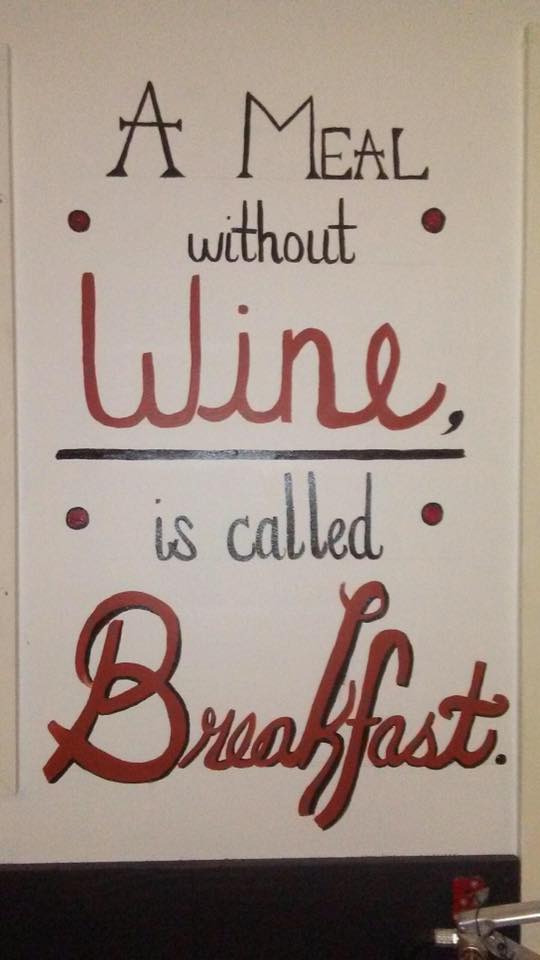 A MEAL
without
Wine,
is called
Breakfast.